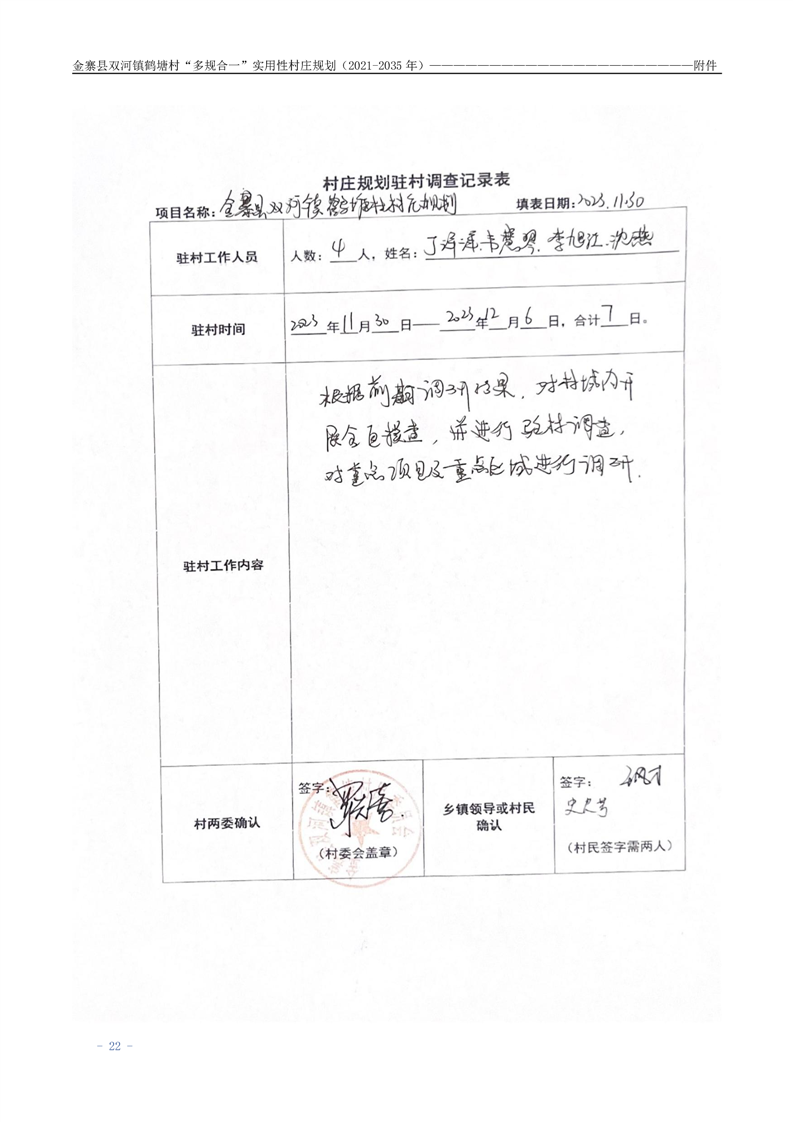 金寨县双河镇鹤塘村“多规合一”实用性村庄规划（2021-2035 年）——————————————————————附件
村庄规划驻村调查记录表
项目名称：金寨县双河镇鹤塘村村庄规划 填表日期：2023.11.30
驻村工作人员
人数：4人，姓名：丁泽泽.韦慧琴.李旭江.沈燕
驻村时间
2023年11月30日——2023年12月6日，合计7日。
驻村工作内容
根据前期调研结果，对村域内开
展全面摸查，并进行驻村调查，
对重点项目及重点区域进行调研.
村两委确认
签字：
（村委会盖章）
乡镇领导或村民
确认
签字：
（村民签字需两人）
- 22 -